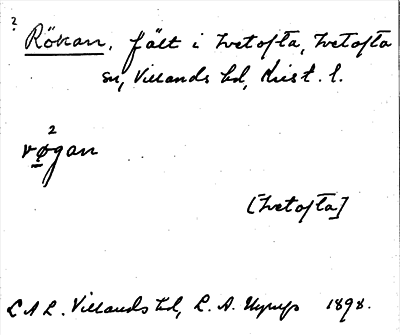 ? Rökan, fält i Ivetofta, Ivetofta
sn, Villands hd, Krist. l.
2
vøgan
[Ivetofta]
L A L. Villands hd, L. A. 1898.